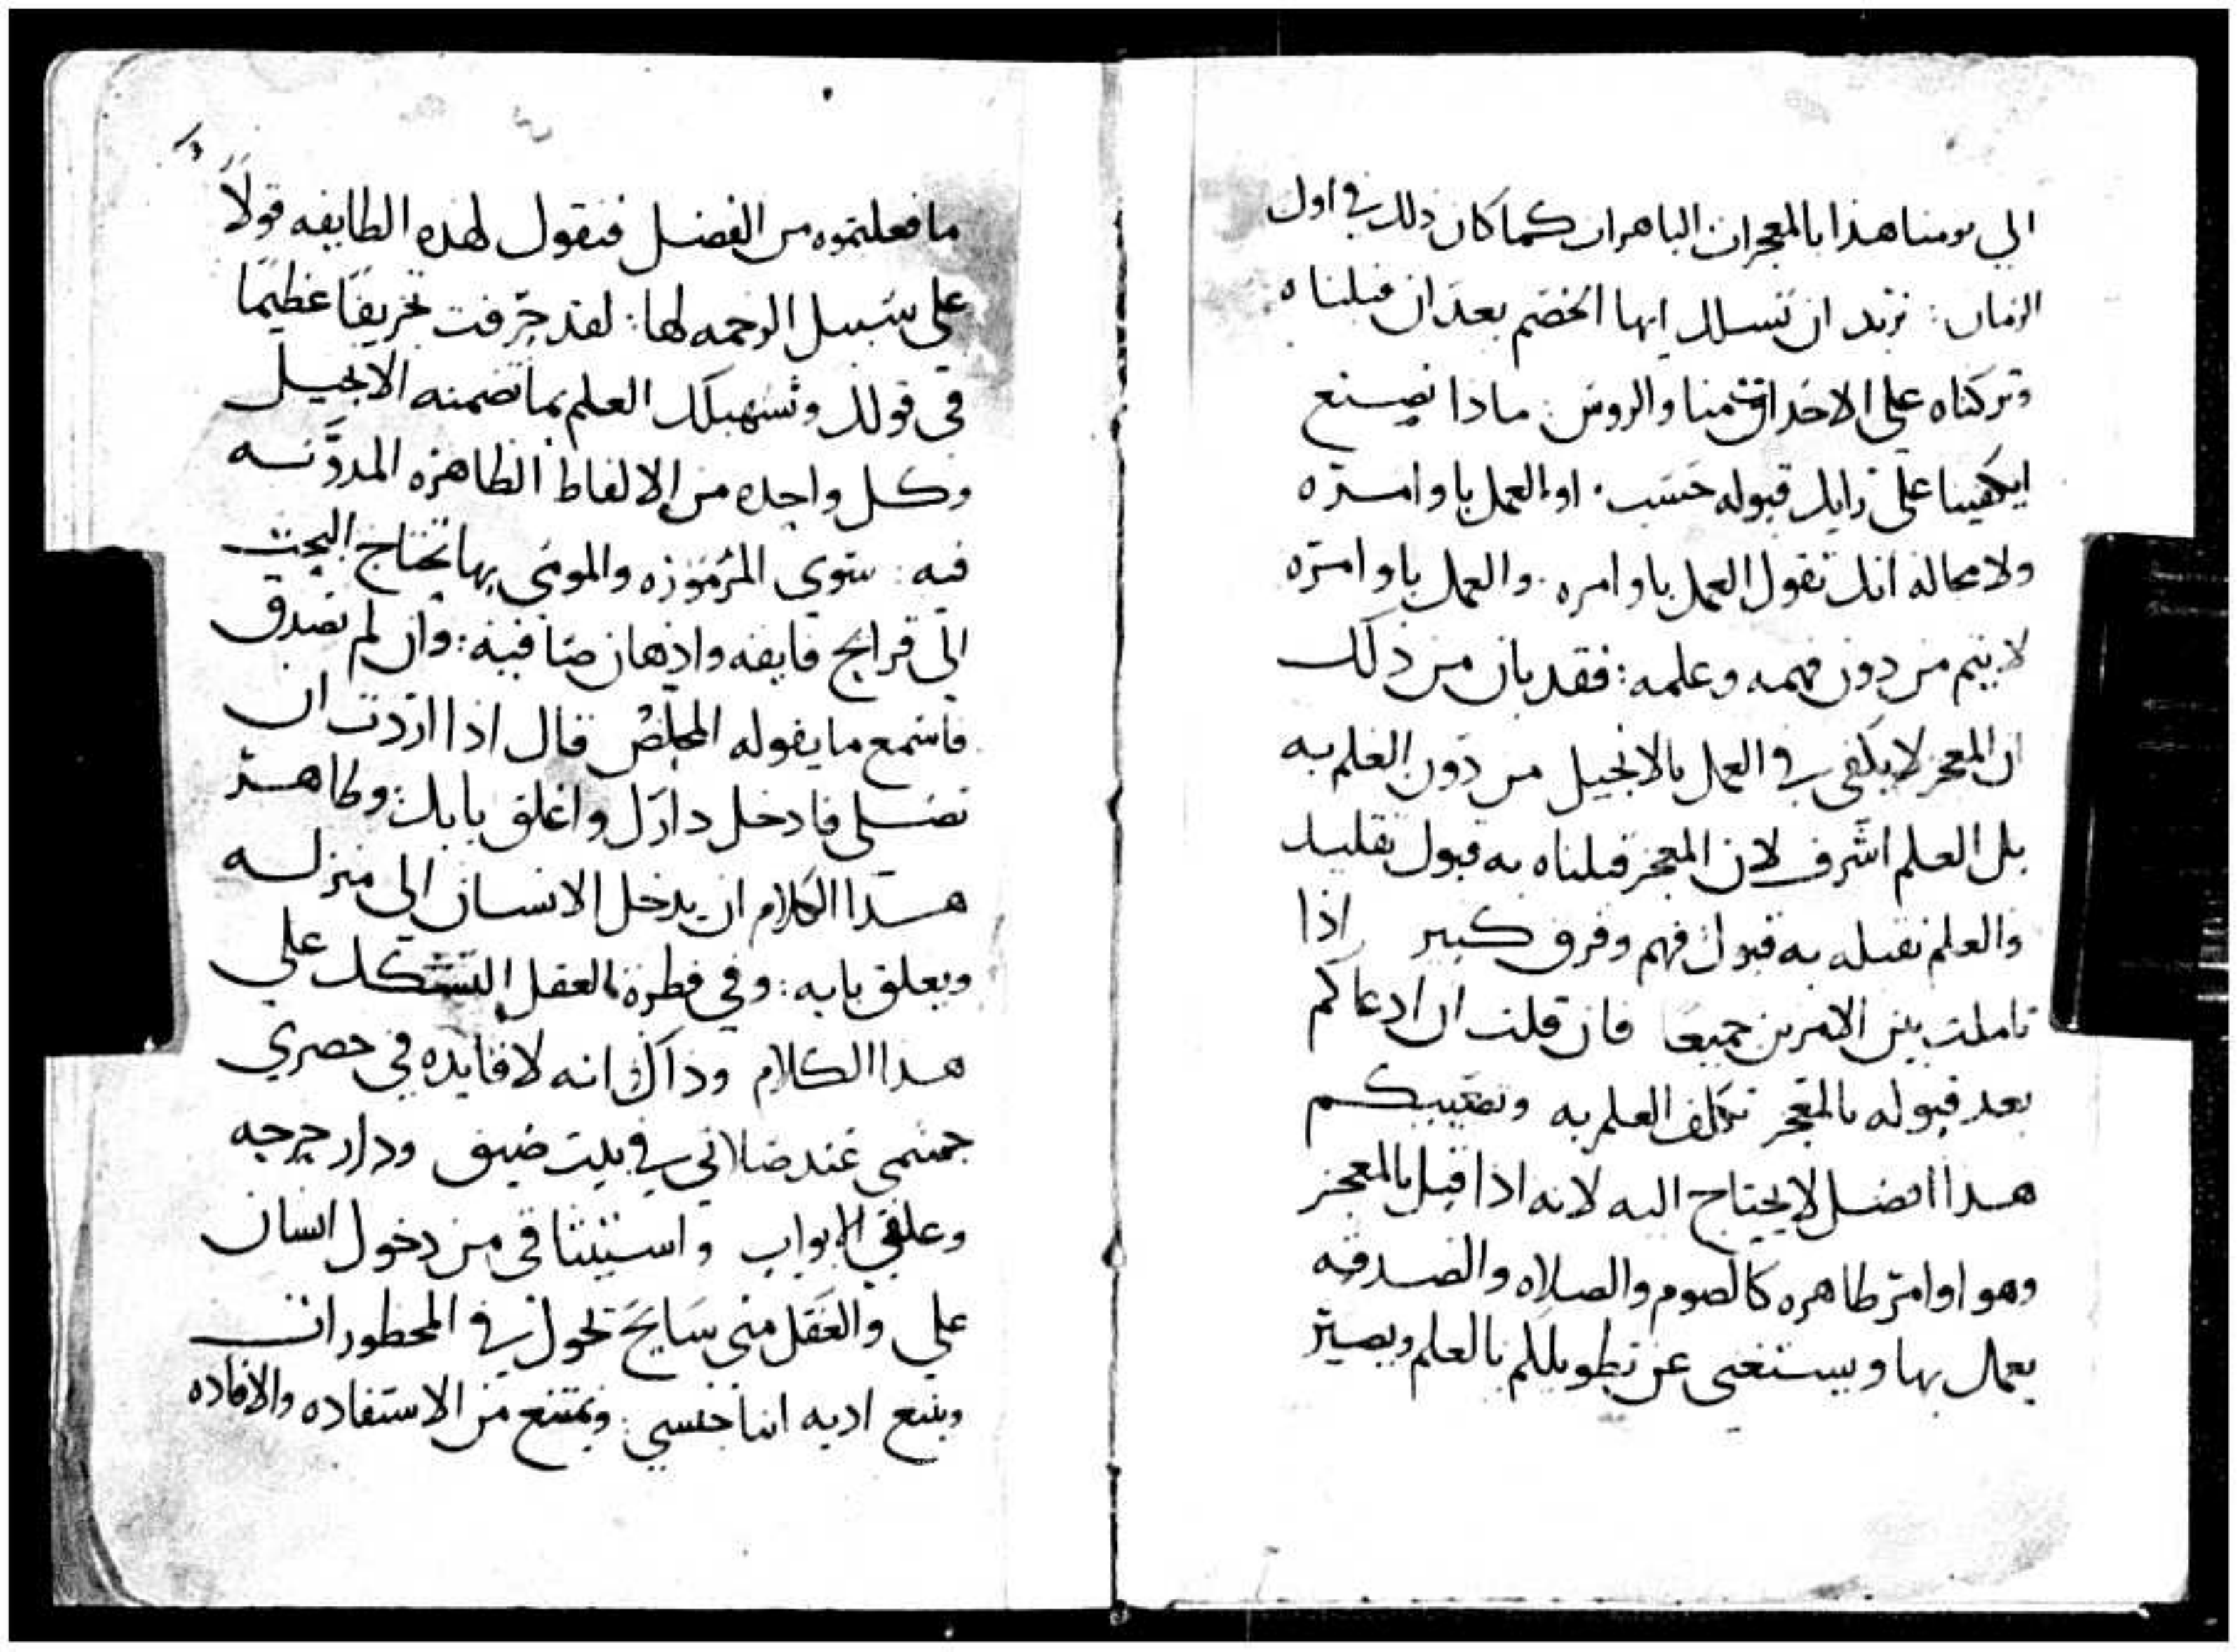 الي يومنا هذا بالمعجزات الباهرات كما كان ذلك في اول
الزمان: نريد ان نسلك ايها الخصم بعد ان قبلناه
وتركناه علي الاحداق منا والروس: ماذا نصنع
ايكفينا علي رايك قبوله حسب. او العمل باوامره
ولا محاله انك تقول العمل باوامره. والعمل باوامره
لا يتم من دون فهمه وعلمه: فقد بان من ذلك
ان المعجز لا يكفي في العمل بالانجيل من دون العلم به
بل العلم اشرف لان المعجز قبلناه به قبول تقليد
والعلم نقبله به قبول فهم وفرق كبير اذا
تاملت بين الامرين جميعا فان قلت ان ادعاكم
بعد قبوله بالمعجز تكلف العلم به وتصعيبكم
هذا افضل لا يحتاج اليه لانه اذا قبل بالمعجز
وهو اوامر ظاهره كالصوم والصلاه والصدقه
يعمل بها ويستغني عن تطويلكم بالعلم ويصير
ما فعلتموه من الفضل فنقول لهذه الطايفه قولاً
علي سبيل الرحمه لها: لقد حرفت تحريفا عظيما
في قولك وتسهيلك العلم بما تضمنه الانجيل
وكل واحده من الالفاظ الظاهره المدونه
فيه: سوي المرموزه والمومي بها تحتاج البحث
الي قرايح فايقه واذهان صافيه: وان لم تصدق
فاسمع ما يقوله المخلص قال اذا اردت ان
تصلي فادخل دارك واغلق بابك: وظاهر
هذا الكلام ان يدخل الانسان الي منزله
ويغلق بابه: وفي فطرة العقل التشكك علي
هذا الكلام وذاك انه لا فايده في حصري
جسمي عند صلاتي في بيت ضيق ودار حرجه
وغلقي الابواب واستيثاقي من دخول انسان
علي والعقل مني سايح تجول في المحظورات
ويمتنع من الاستفاده والافاده